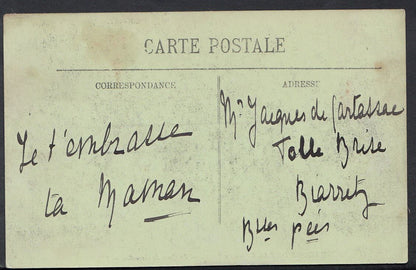 CARTE POSTALE
CORRESPONDANCE
ADRESSE
Je t'embrasse
ta Maman
Mr Jacques de Cartassac
Folle Brise
Biarritz
Bses pées